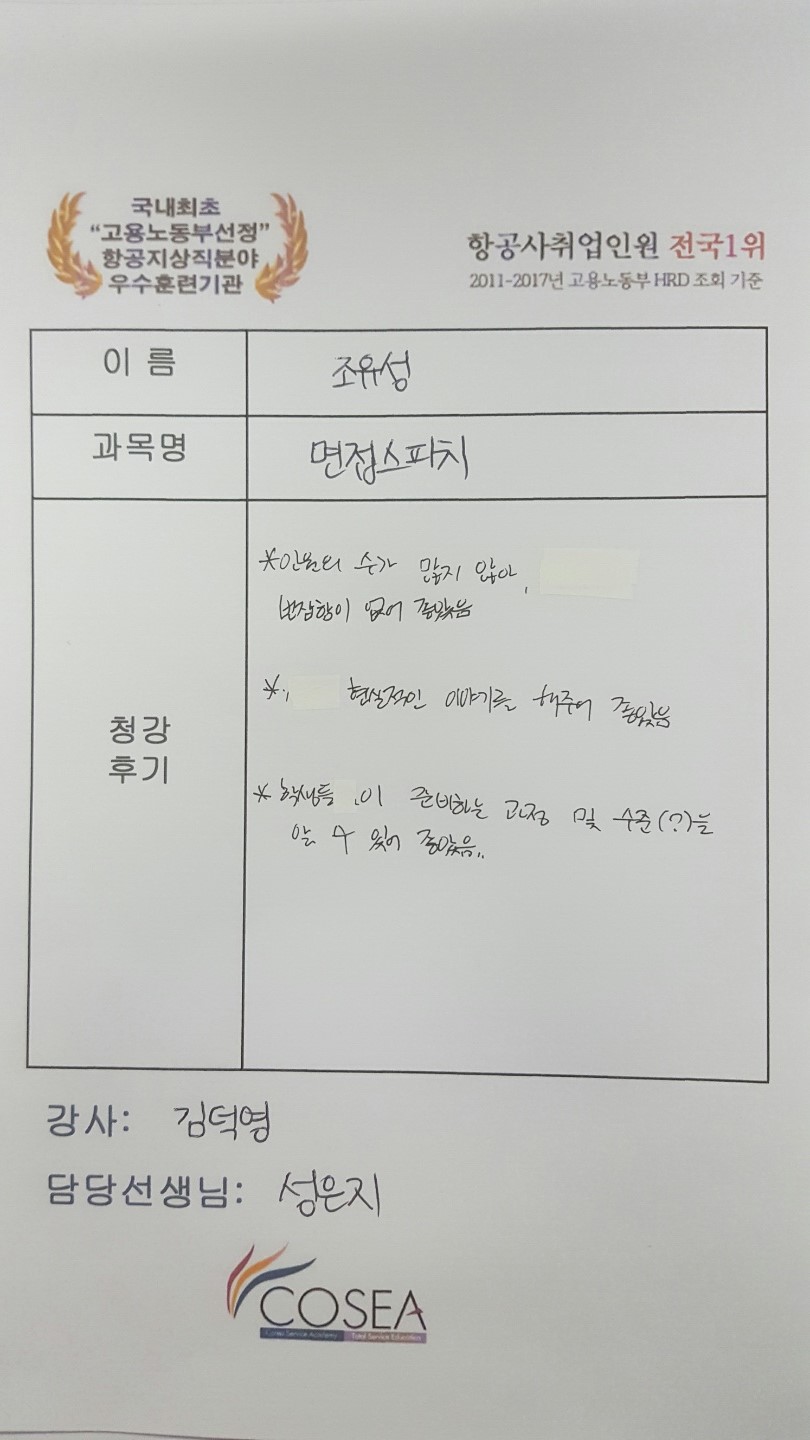 국내최초
"고용노동부선정"
항공지상직분야
우수훈련기관
항공사취업인원 전국1위
2011-2017년 고용노동부 HRD 조회 기준
이 름
조유성
과목명
면접스피치
청강
후기
*인원의 수가 많지 않아,
번잡함이 없어 좋았음
*, 현실적인 이야기를 해주어 좋았음
* 학생들 이 준비하는 과정 및 수준(?)을
알 수 있어 좋았음..
강사: 김덕영
담당선생님: 성은지
COSEA
Korea Service Academy Total Service Education